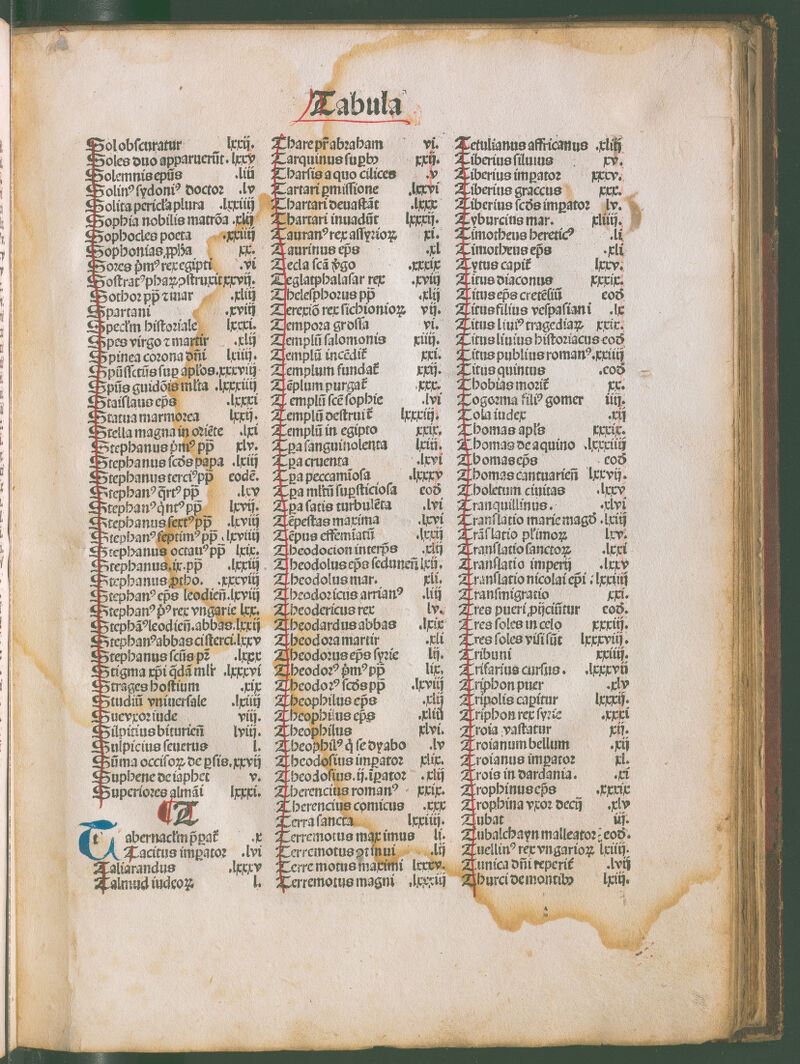 Tabula
Sol obscuratur lxxij.
Soles duo apparuerūt. lxxv
Solemnis ep̄us .liij
Solinꝰ sydoniꝰ doctor .lv
Solita pericl̄a plura .lxxiiij
Sophia nobilis matrōa .xlij
Sophocles poeta .xxiiij
Sophonias ꝓph̄a xx.
Sores p̄mꝰ rex egipti .vi
Sostratꝰ phaꝝ ↄstruxit xxvij.
Sother pp̄ ⁊ mar .xliij
Spartani .xviij
Specl̄m historiale lxxxi.
Spes virgo ⁊ martir .xlij
Spinea corona dn̄i lxiiij.
Sp̄ūssctūs suꝑ apl̄os .xxxviij
Sp̄ūs guidōis ml̄ta .lxxxiiij
Staislaus ep̄s .lxxxi
Statua marmorea lxxij.
Stella magna in oriēte .lxi
Stephanus p̄mꝰ pp̄ xlv.
Stephanus scd̄s papa .lxiij
Stephanus terciꝰ pp̄ eodē.
Stephanꝰ q̄rtꝰ pp̄ .lxv
Stephanꝰ q̄ntꝰ pp̄ lxvij.
Stephanus sextꝰ pp̄ .lxviij
Stephanꝰ septimꝰ pp̄ .lxviiij
Stephanus octauꝰ pp̄ lxix.
Stephanus .ix. pp̄ .lxxiij
Stephanus ꝓtho. .xxxviij
Stephanꝰ ep̄s leodien̄. lxviij
Stephanꝰ p̄ꝰ rex vngarie lxx.
Stephāꝰ leodien̄. abbas. lxxij
Stephanꝰ abbas cisterci. lxxv
Stephanus scūs pr̄ .lxxx
Stigma xp̄i q̄dā ml̄r .lxxxvi
Strages hostium .xix
Studiū vniuersale .lxiiij
Sue vxor iude viij.
Silpicius bituricēn lviij.
Sulpicius seuerus l.
Sūma occisoꝝ de ꝑsis. xxvij
Suphene de iaphet v.
Superiores almāi lxxxi.
T
Tabernacl̄m p̄ꝑat̄ .x
Tacitus imꝑator .lvi
Taliarandus .lxxxv
Talmud iudeoꝝ l.
Thare pr̄ abraham vi.
Tarquinus suꝑbꝰ xxij.
Tharsis a quo cilices .v
Tartari ꝑmissione .lxxvi
Thartari deuastāt .lxxx
Thartari inuadūt lxxxij.
Tauranꝰ rex assyrioꝝ xi.
Taurinus ep̄s .xl
Tecla scā v̄go .xxxix
Teglatphalasar rex .xviij
Thelesphorus pp̄ .xlij
Terexiō rex sichionioꝝ vij.
Tempora grossa vi.
Templū salomonis xiiij.
Templū incēdit̄ xxi.
Templum fundat̄ xxij.
Tēplum purgat̄ xxx.
Templū scē sophie .lvi
Templū destruit̄ lxxxiij.
Templū in egipto xxix.
Tꝑa sanguinolenta lxiij.
Tꝑa cruenta .lxvi
Tꝑa peccamiōsa .lxxxv
Tꝑa ml̄tū suꝑsticiosa eod̄
Tꝑa satis turbulēta .lvi
Tēpestas maxima .lxvi
Tēpus effemiatū .lxxij
Theodocion interp̄s .xlij
Theodolus ep̄s sedunen̄ lxij.
Theodolus mar. xli.
Theodoricus arrianꝰ .liij
Theodericus rex lv.
Theodardus abbas .lxix
Theodora martir .xli
Theodorus ep̄s syrie lij.
Theodorꝰ p̄mꝰ pp̄ lix.
Theodorꝰ scd̄s pp̄ .lxviij
Theophilus ep̄s .xlij
Theophilus ep̄s .xliiij
Theophilus xlvi.
Theophilꝰ q̄ se dyabo .lv
Theodosius imꝑator xlix.
Theodosius .ij. īꝑator .xlij
Therencius romanꝰ xxix.
Therencius comicus .xxx
Terra sancta lxxiiij.
Terremotus maximus li.
Terremotus ↄtinui .lij
Terre motus maximi lxxxv.
Terremotus magni .lxxxij
Tetulianus affricanus .xliij
Tiberius siluius xv.
Tiberius imꝑator xxxv.
Tiberius graccus xxx.
Tiberius scd̄s imꝑator lv.
Tyburcius mar. xliiij.
Timotheus hereticꝰ .li
Timotheus ep̄s .xli
Tytus capit̄ lxxv.
Titus diaconus xxxix.
Titus ep̄s cretēsiū eod̄
Titus filius vespasiani .lx
Titus liuiꝰ tragediaꝝ xxix.
Titus liuius historiacus eod̄
Titus publius romanꝰ. xxiiij
Titus quintus .eod̄
Thobias morit̄ xx.
Togorma filiꝰ gomer iiij.
Tola iudex .xij
Thomas apl̄s xxxix.
Thomas de aquino .lxxxiiij
Thomas ep̄s eod̄
Thomas cantuarien̄ lxxvij.
Tholetum ciuitas .lxxv
Tranquillinus. .xlvi
Translatio marie magd̄ .lxiij
Trāslatio pl̄imoꝝ lxv.
Translatio sanctoꝝ .lxxi
Translatio imperij .lxxv
Translatio nicolai ep̄i : lxxiiij
Transmigratio xxi.
Tres pueri ꝓijciūtur eod̄.
Tres soles in celo xxxiij.
Tres soles visi sūt lxxxviij.
Tribuni xxiiij.
Trifarius cursus. .lxxxvij
Triphon puer .xlv
Tripolis capitur lxxxij.
Triphon rex syrie .xxxi
Troia vastatur xij.
Troianum bellum .xij
Troianus imꝑator xl.
Trois in dardania. .xi
Trophinus ep̄s .xxxix
Trophina vxor decij .xlv
Tubat iij.
Tubalchayn malleator : eod̄.
Tuellinꝰ rex vngarioꝝ lxiiij.
Tunica dn̄i reperit̄ .lvij
Thurci de montibꝰ lxiij.